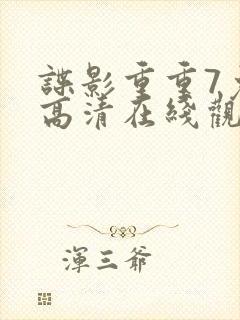 諜影重重7
高清在綫觀
渾三爺